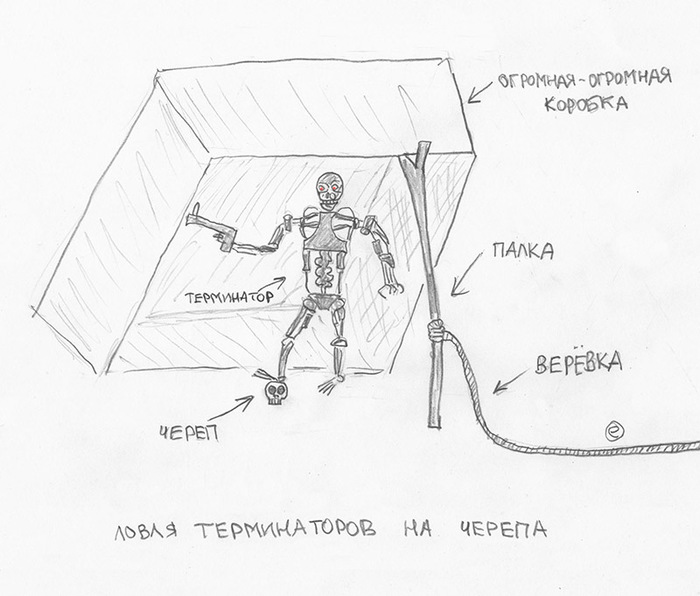 ОГРОМНАЯ-ОГРОМНАЯ
КОРОБКА
ПАЛКА
ТЕРМИНАТОР
ВЕРЁВКА
ЧЕРЕП
ЛОВЛЯ ТЕРМИНАТОРОВ НА ЧЕРЕПА